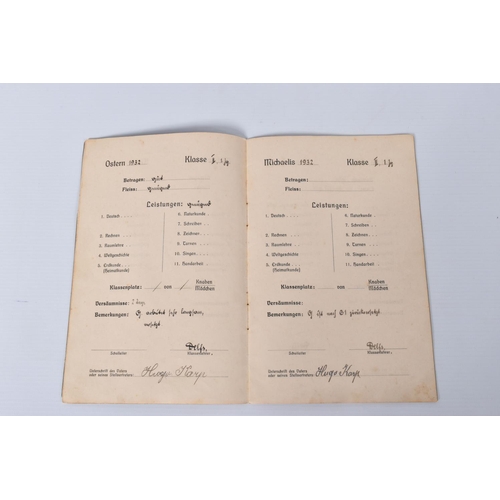 Ostern 1932 Klasse
Betragen: gut
Fleiss: genügend
Leistungen: genügend
1. Deutsch
2. Rechnen
3. Raumlehre
4. Weltgeschichte
5. Erdkunde
(Heimatkunde)
6. Naturkunde
7. Schreiben
8. Zeichnen
9. Turnen
10. Singen
11. Handarbeit
Klassenplatz: / von / Knaben
Mädchen
Versäumnisse:
Bemerkungen: arbeitet sehr langsam,
versetzt
Schulleiter Klassenlehrer.
Unterschrift des Vaters
oder seines Stellvertreters: Hugo Karp
Michaelis 1932 Klasse
Betragen:
Fleiss:
Leistungen:
1. Deutsch
2. Rechnen
3. Raumlehre
4. Weltgeschichte
5. Erdkunde
(Heimatkunde)
6. Naturkunde
7. Schreiben
8. Zeichnen
9. Turnen
10. Singen
11. Handarbeit
Klassenplatz: von Knaben
Mädchen
Versäumnisse:
Bemerkungen: ist
Schulleiter Klassenlehrer.
Unterschrift des Vaters
oder seines Stellvertreters: Hugo Karp